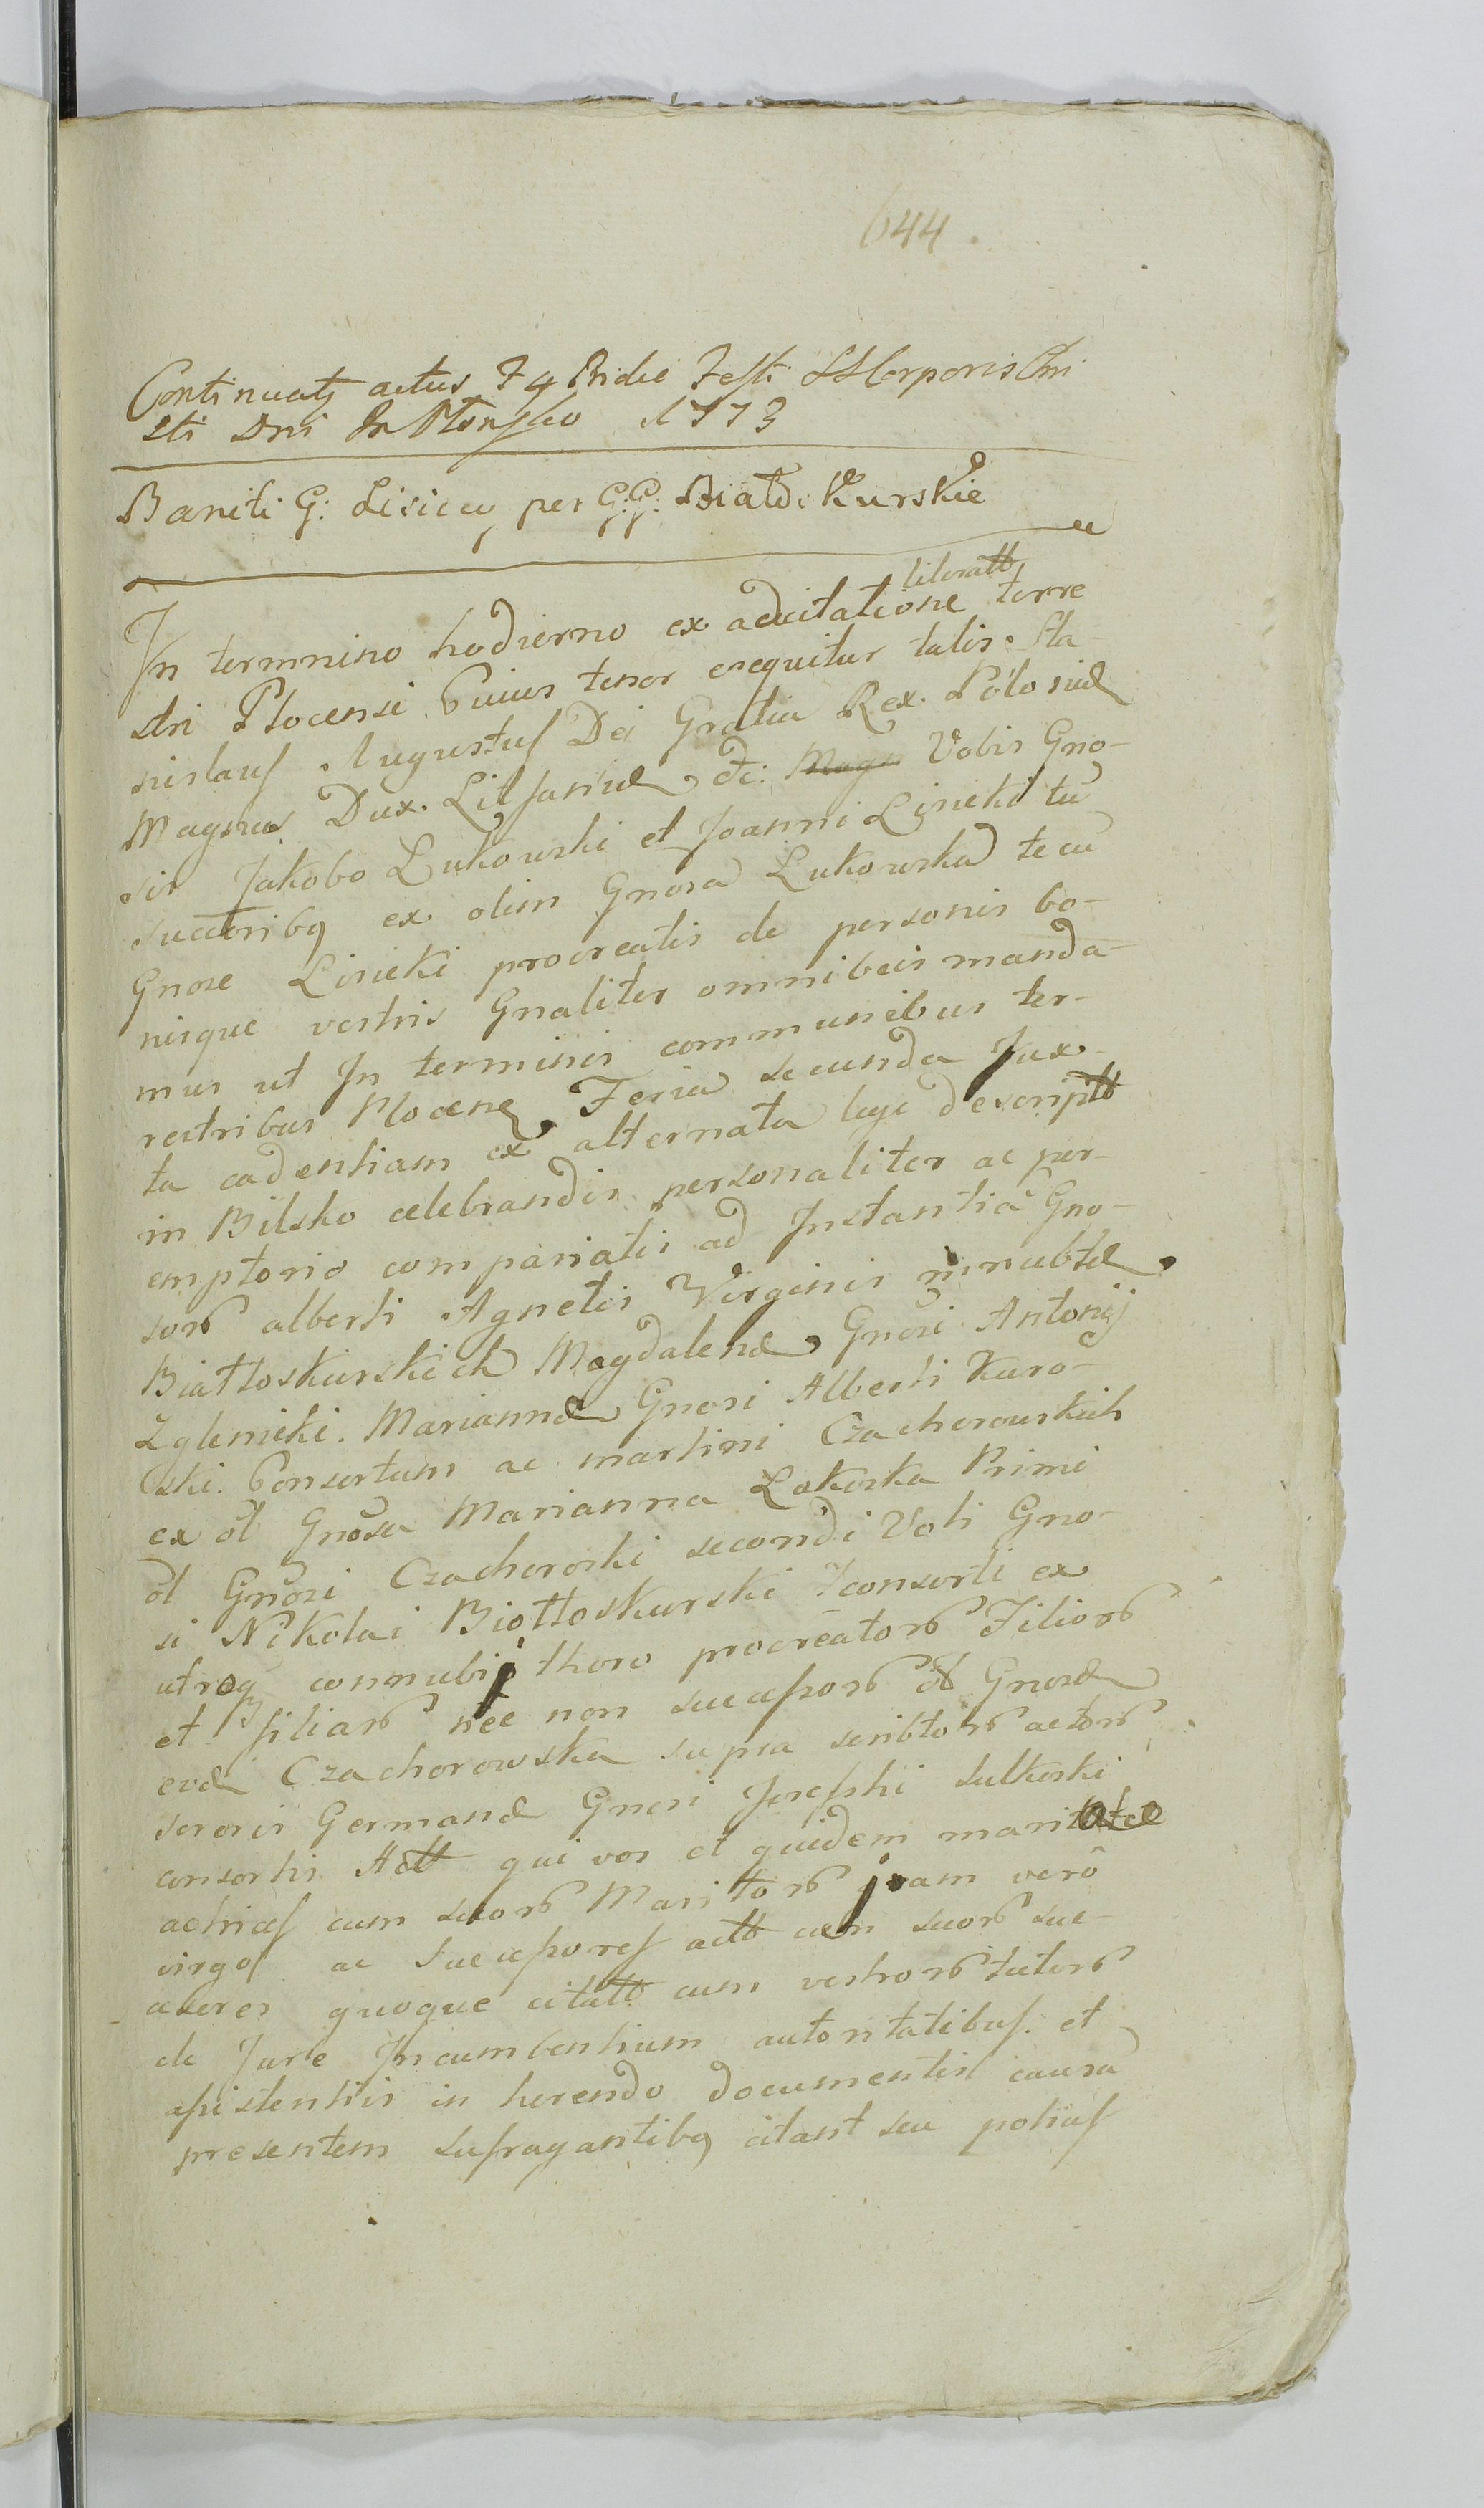 644.
Continuatq actus F 4 Pridie Festi SSCorporis Chri
sti Dni In Płonsko 1773
Baniti G: Lisicey per G:G: Białoskurskie
literatt
In termnino hodierno ex adcitatione terre
stri Plocensi Cuius tenor exequitur talis. Sta-
nislaus Augustus Dei Gratia Rex. Poloniæ
Magnus Dux. Lithaniæ &c: Vobis Gno-
sis Jakobo Łukowski et Joanni Lisiekĩ tũ
succoribq ex olim Gnosa Łukowska tecũ
Gnose Lisieki procreatis de personis bo-
nisque vestris Gnaliter omnibus manda-
mus ut In terminis communibus ter-
restribus Plocens Feria secunda Jux-
ta cadentiam ex alternata lege descriptt
in Bilsko celebrandis personaliter ac per-
emptorio compariatis ad Instantiã Gno-
sorum alberti Agnetis Virginis innubtæ
Białłoskurskich Magdalenæ Gnosi Antonij
Zglenicki. Mariannæ Gnosi Alberti Kuro-
ski. Consortum ac martini Czachorowskich
ex ol Gnosa Marianna Łakoska Primi
ol Gnosi Czachoroski secondi Voti Gno-
si Nikolai Biołłoskurski consorti ex
utroq connubij thoro procreatorum Filiorum
et filiarum nec non successorum ol Gnosæ
evæ Czachorowska supra scribtorum actorum
sororis Germanæ Gnosi Josephi Sulkoski
consortis Actt qui vos et quidem maritatæ
actrices cum suorum Maritorum jam verô
virgo ac Successores actt cum suorum suc-
cesores quoque citatt cum vestrorum tutorum
de Jure Incumbentium autoritatibus. et
assistentiis in herendo documentis causã
presentem sufragantibq citant seu potius